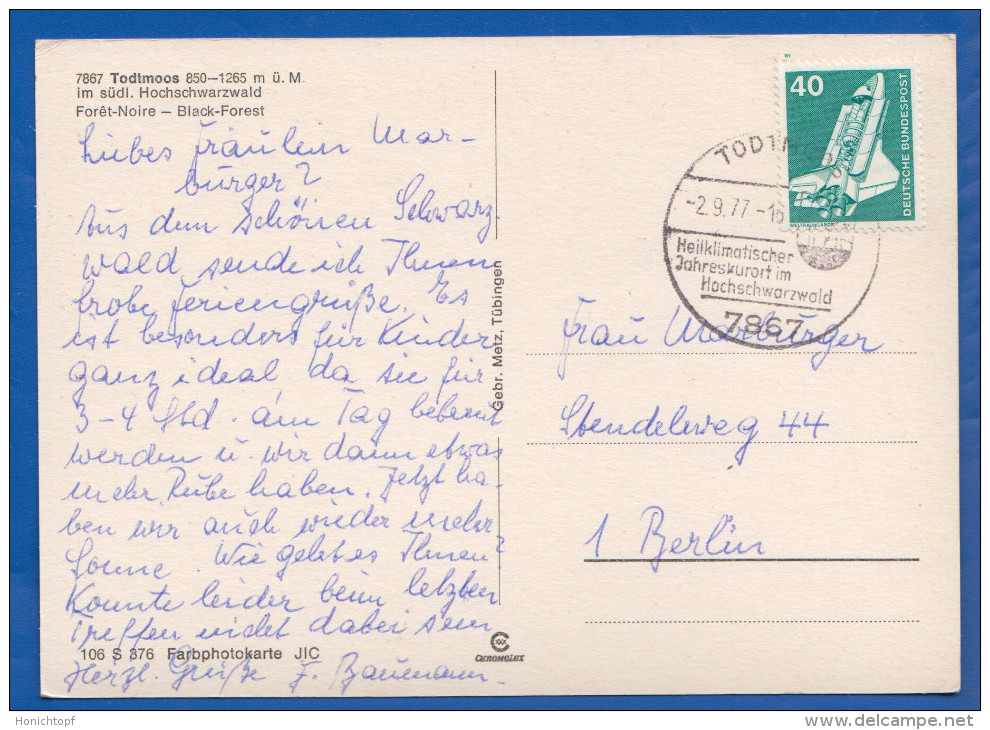 7867 Todtmoos 850–1265 m ü. M.
im südl. Hochschwarzwald
Forêt-Noire – Black-Forest
Liebes Fräulein Mar-
burger?
Aus dem schönen Schwarz-
wald sende ich Ihnen
frohe Feriengrüße. Es
ist besonders für Kinder
ganz ideal da sie für
3-4 Std. am Tag betreut
werden u. wir dann etwas
mehr Ruhe haben. Jetzt ha-
ben wir auch wieder mehr
Sonne. Wie geht es Ihnen?
Konnte leider beim letzten
Treffen nicht dabei sein
Herzl. Grüße F. Baumann.
106 S 376 Farbphotokarte JIC
Gebr. Metz, Tübingen
CHROMOLUX
40
DEUTSCHE BUNDESPOST
WELTRAUMLABOR
-2.9.77-16
Heilklimatischer
Jahreskurort im
Hochschwarzwald
7867
Frau Marburger
Stendelweg 44
1 Berlin
Honichtopf
www.delcampe.net